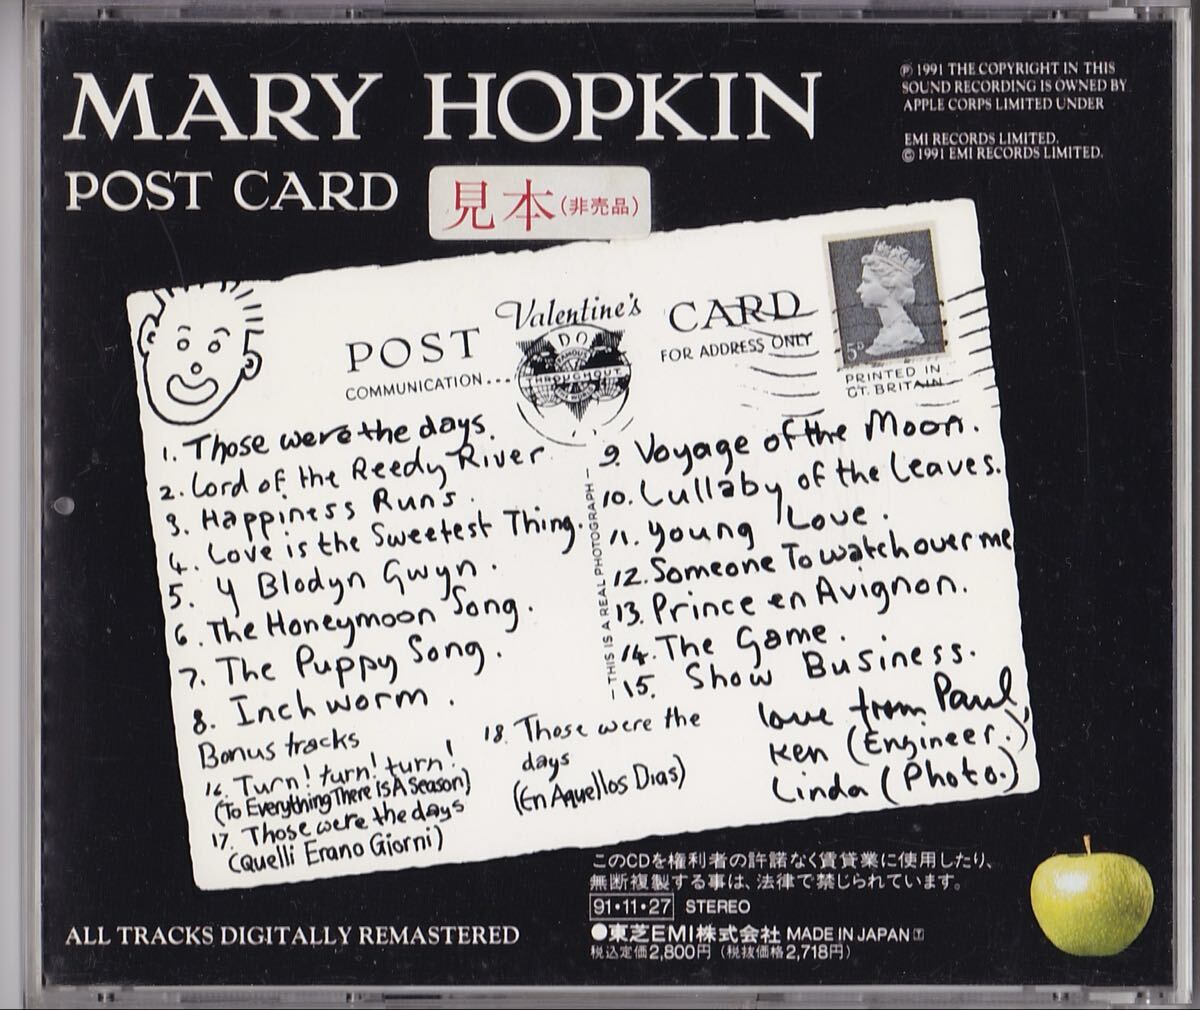 MARY HOPKIN
POST CARD
見本(非売品)
Ⓟ 1991 THE COPYRIGHT IN THIS
SOUND RECORDING IS OWNED BY
APPLE CORPS LIMITED UNDER
EMI RECORDS LIMITED.
© 1991 EMI RECORDS LIMITED.
POST
Valentine's
CARD
COMMUNICATION...
FOR ADDRESS ONLY
FAMOUS
THROUGHOUT
5ᴰ
PRINTED IN
GT. BRITAIN
1. Those were the days.
2. Lord of the Reedy River
3. Happiness Runs.
4. Love is the Sweetest Thing.
5. Y Blodyn Gwyn.
6. The Honeymoon Song.
7. The Puppy Song.
8. Inch worm.
Bonus tracks
16. Turn! turn! turn!
(To Everything There Is A Season)
17. Those were the days
(Quelli Erano Giorni)
18. Those were the
days
(En Aquellos Dias)
— THIS IS A REAL PHOTOGRAPH —
9. Voyage of the Moon.
10. Lullaby of the Leaves.
11. Young Love.
12. Someone To watch over me
13. Prince en Avignon.
14. The Game.
15. Show Business.
love from Paul,
Ken (Engineer.)
Linda (Photo.)
このCDを権利者の許諾なく賃貸業に使用したり、
無断複製する事は、法律で禁じられています。
91・11・27 STEREO
●東芝EMI株式会社 MADE IN JAPAN Ⓣ
税込定価2,800円 (税抜価格2,718円)
ALL TRACKS DIGITALLY REMASTERED